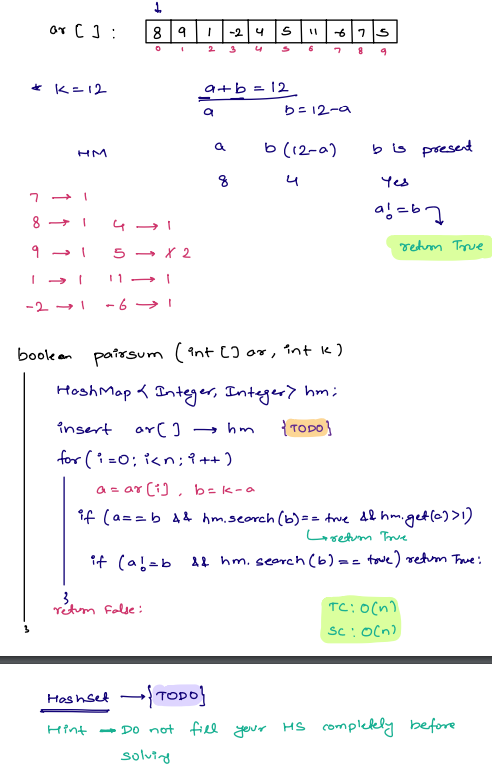 ar [ ] : 8 9 1 -2 4 5 11 -6 7 5
0 1 2 3 4 5 6 7 8 9
* K=12 a+b = 12
a b=12-a
HM a b (12-a) b is present
8 4 Yes
7 → 1 a!=b
8 → 1 4 → 1 return True
9 → 1 5 → 1 2
1 → 1 11 → 1
-2 → 1 -6 → 1
boolean pairsum (int [] ar, int K)
HashMap < Integer, Integer> hm;
insert ar[ ] → hm {TODO}
for ( i=0; i<n; i++ )
a = ar[i] , b = K-a
if (a == b && hm.search(b)== true && hm.get(a) >1)
return True
if (a!=b && hm. search(b) == true) return True;
}
return False;
}
TC: O(n)
SC: O(n)
HashSet → {TODO}
Hint → Do not fill your HS completely before
solving